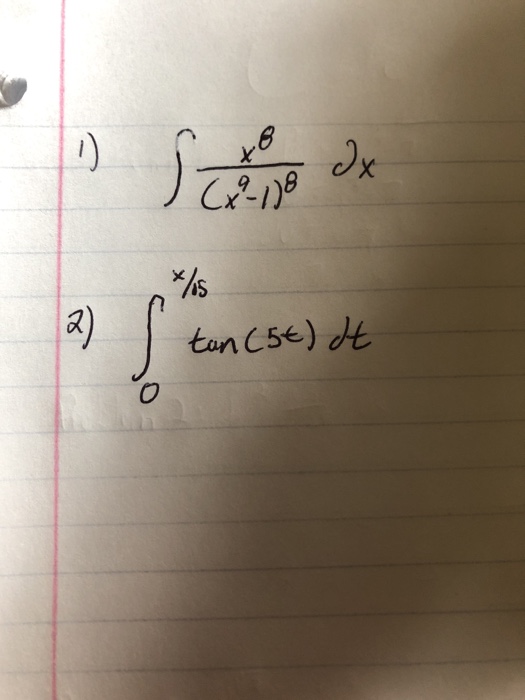 1) ∫ x^8 / (x^9-1)^8 dx
2) ∫_0^{x/15} tan(5t) dt